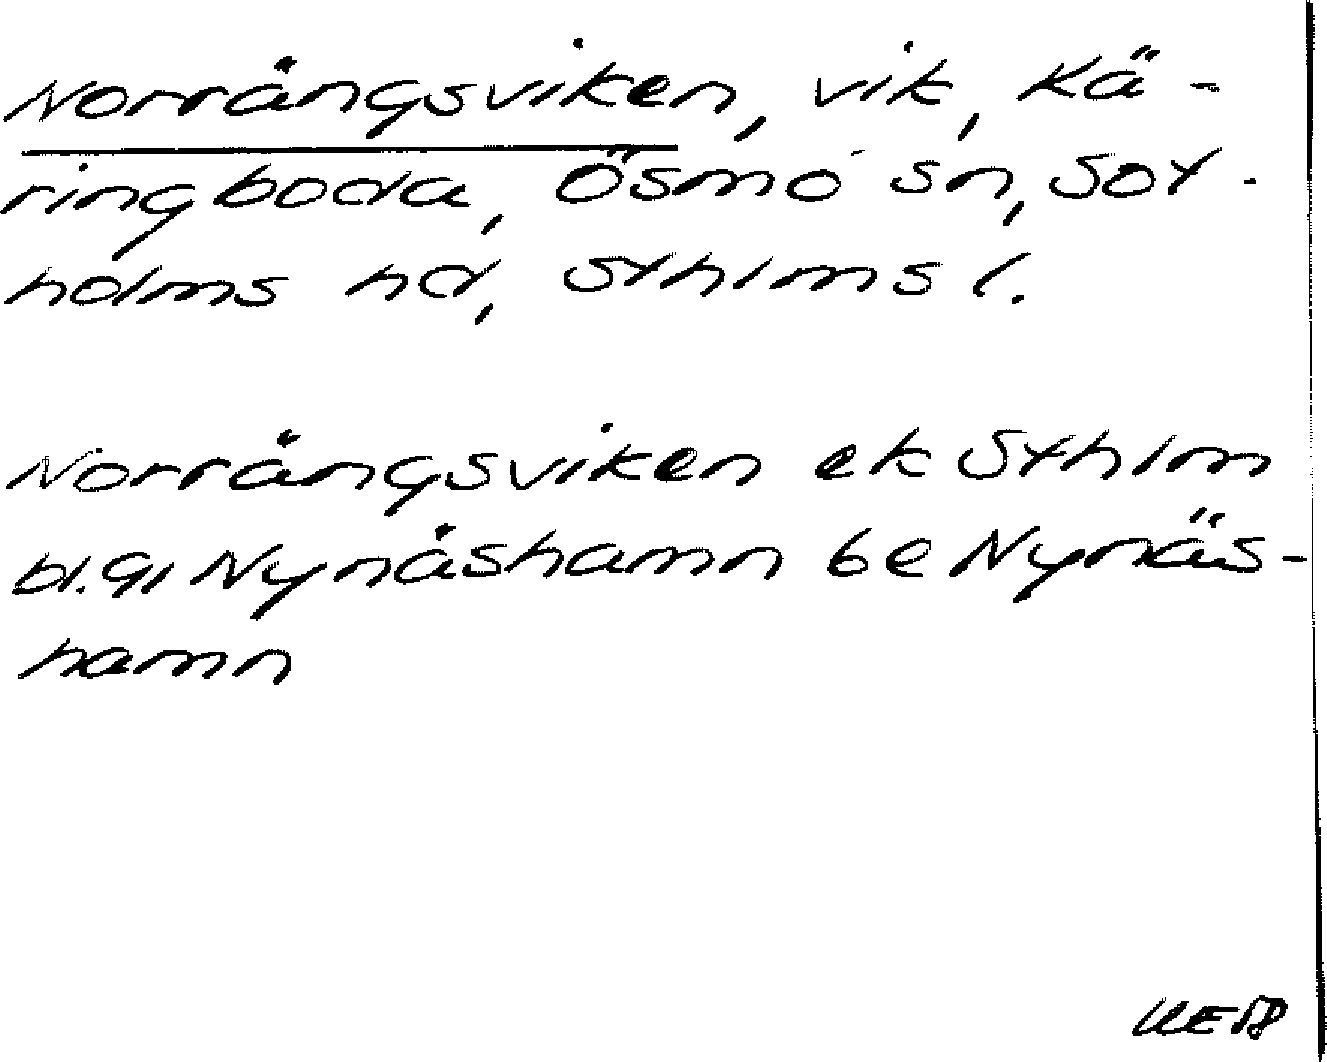 Norrängsviken, vik, Kä-
ringboda, Ösmo sn, Sot-
holms hd, Sthlms l.
Norrängsviken ek Sthlm
bl. 91 Nynäshamn 6e Nynäs-
hamn